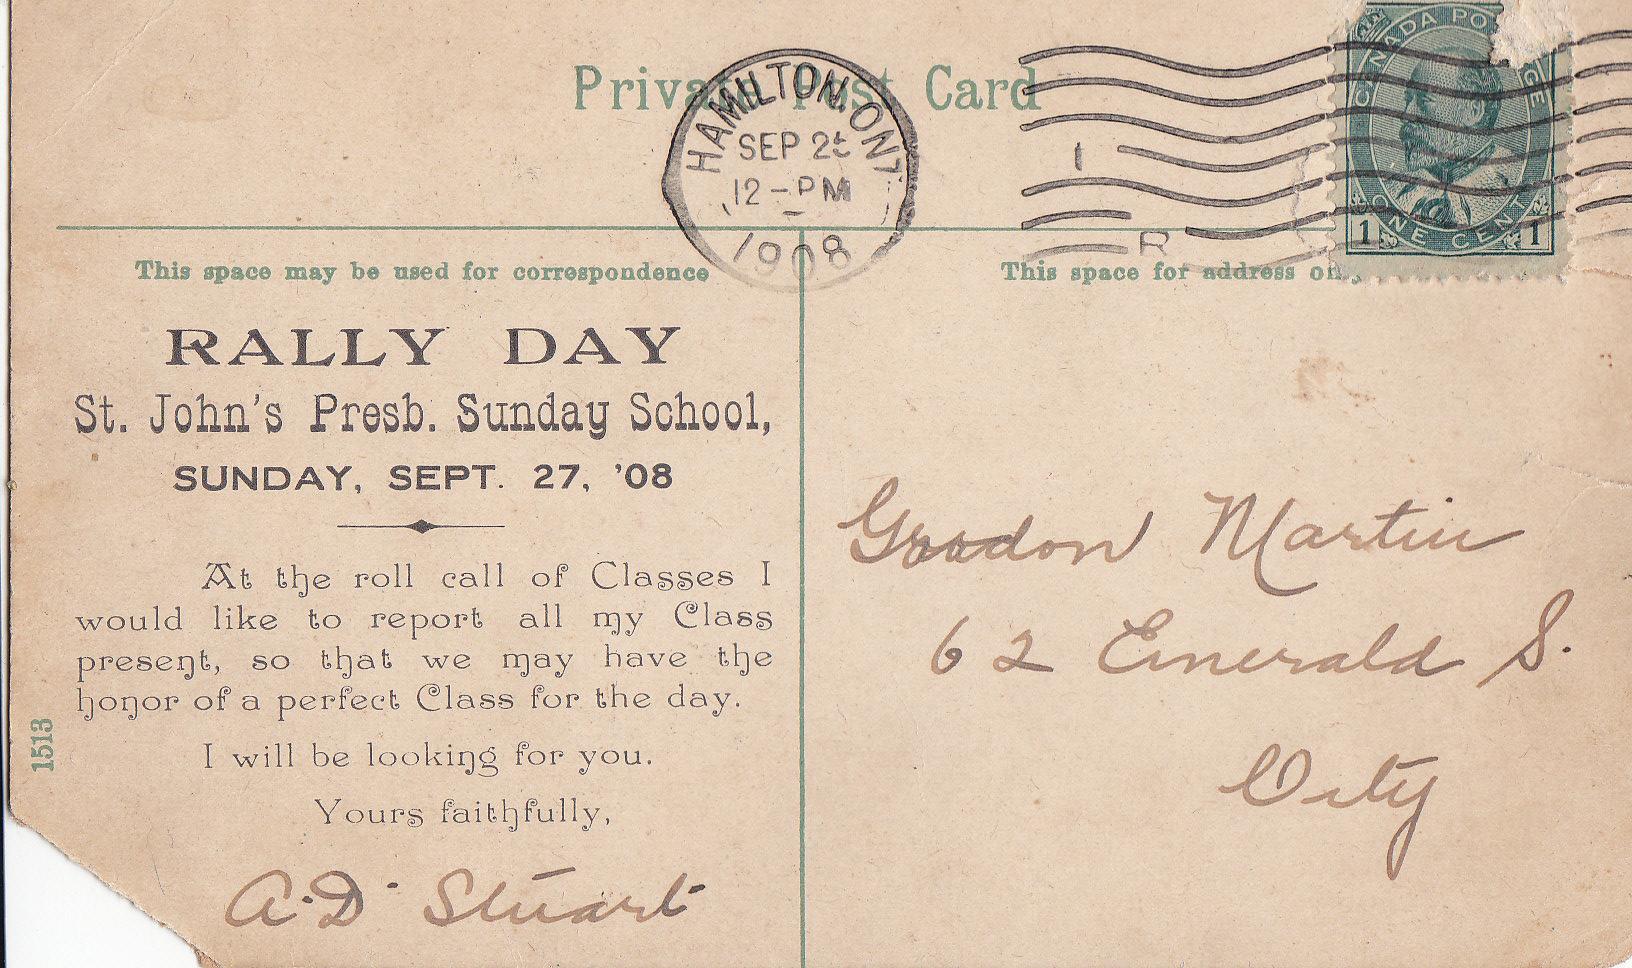 Private Post Card
HAMILTON, ONT
SEP 25
12 - PM
1908
1
R
CANADA POSTAGE
ONE CENT
1 1
This space may be used for correspondence
This space for address only
RALLY DAY
St. John's Presb. Sunday School,
SUNDAY, SEPT. 27, '08
At the roll call of Classes I
would like to report all my Class
present, so that we may have the
honor of a perfect Class for the day.
I will be looking for you.
Yours faithfully,
A. D. Stuart
1513
Grodon Martin
62 Emerald S.
City